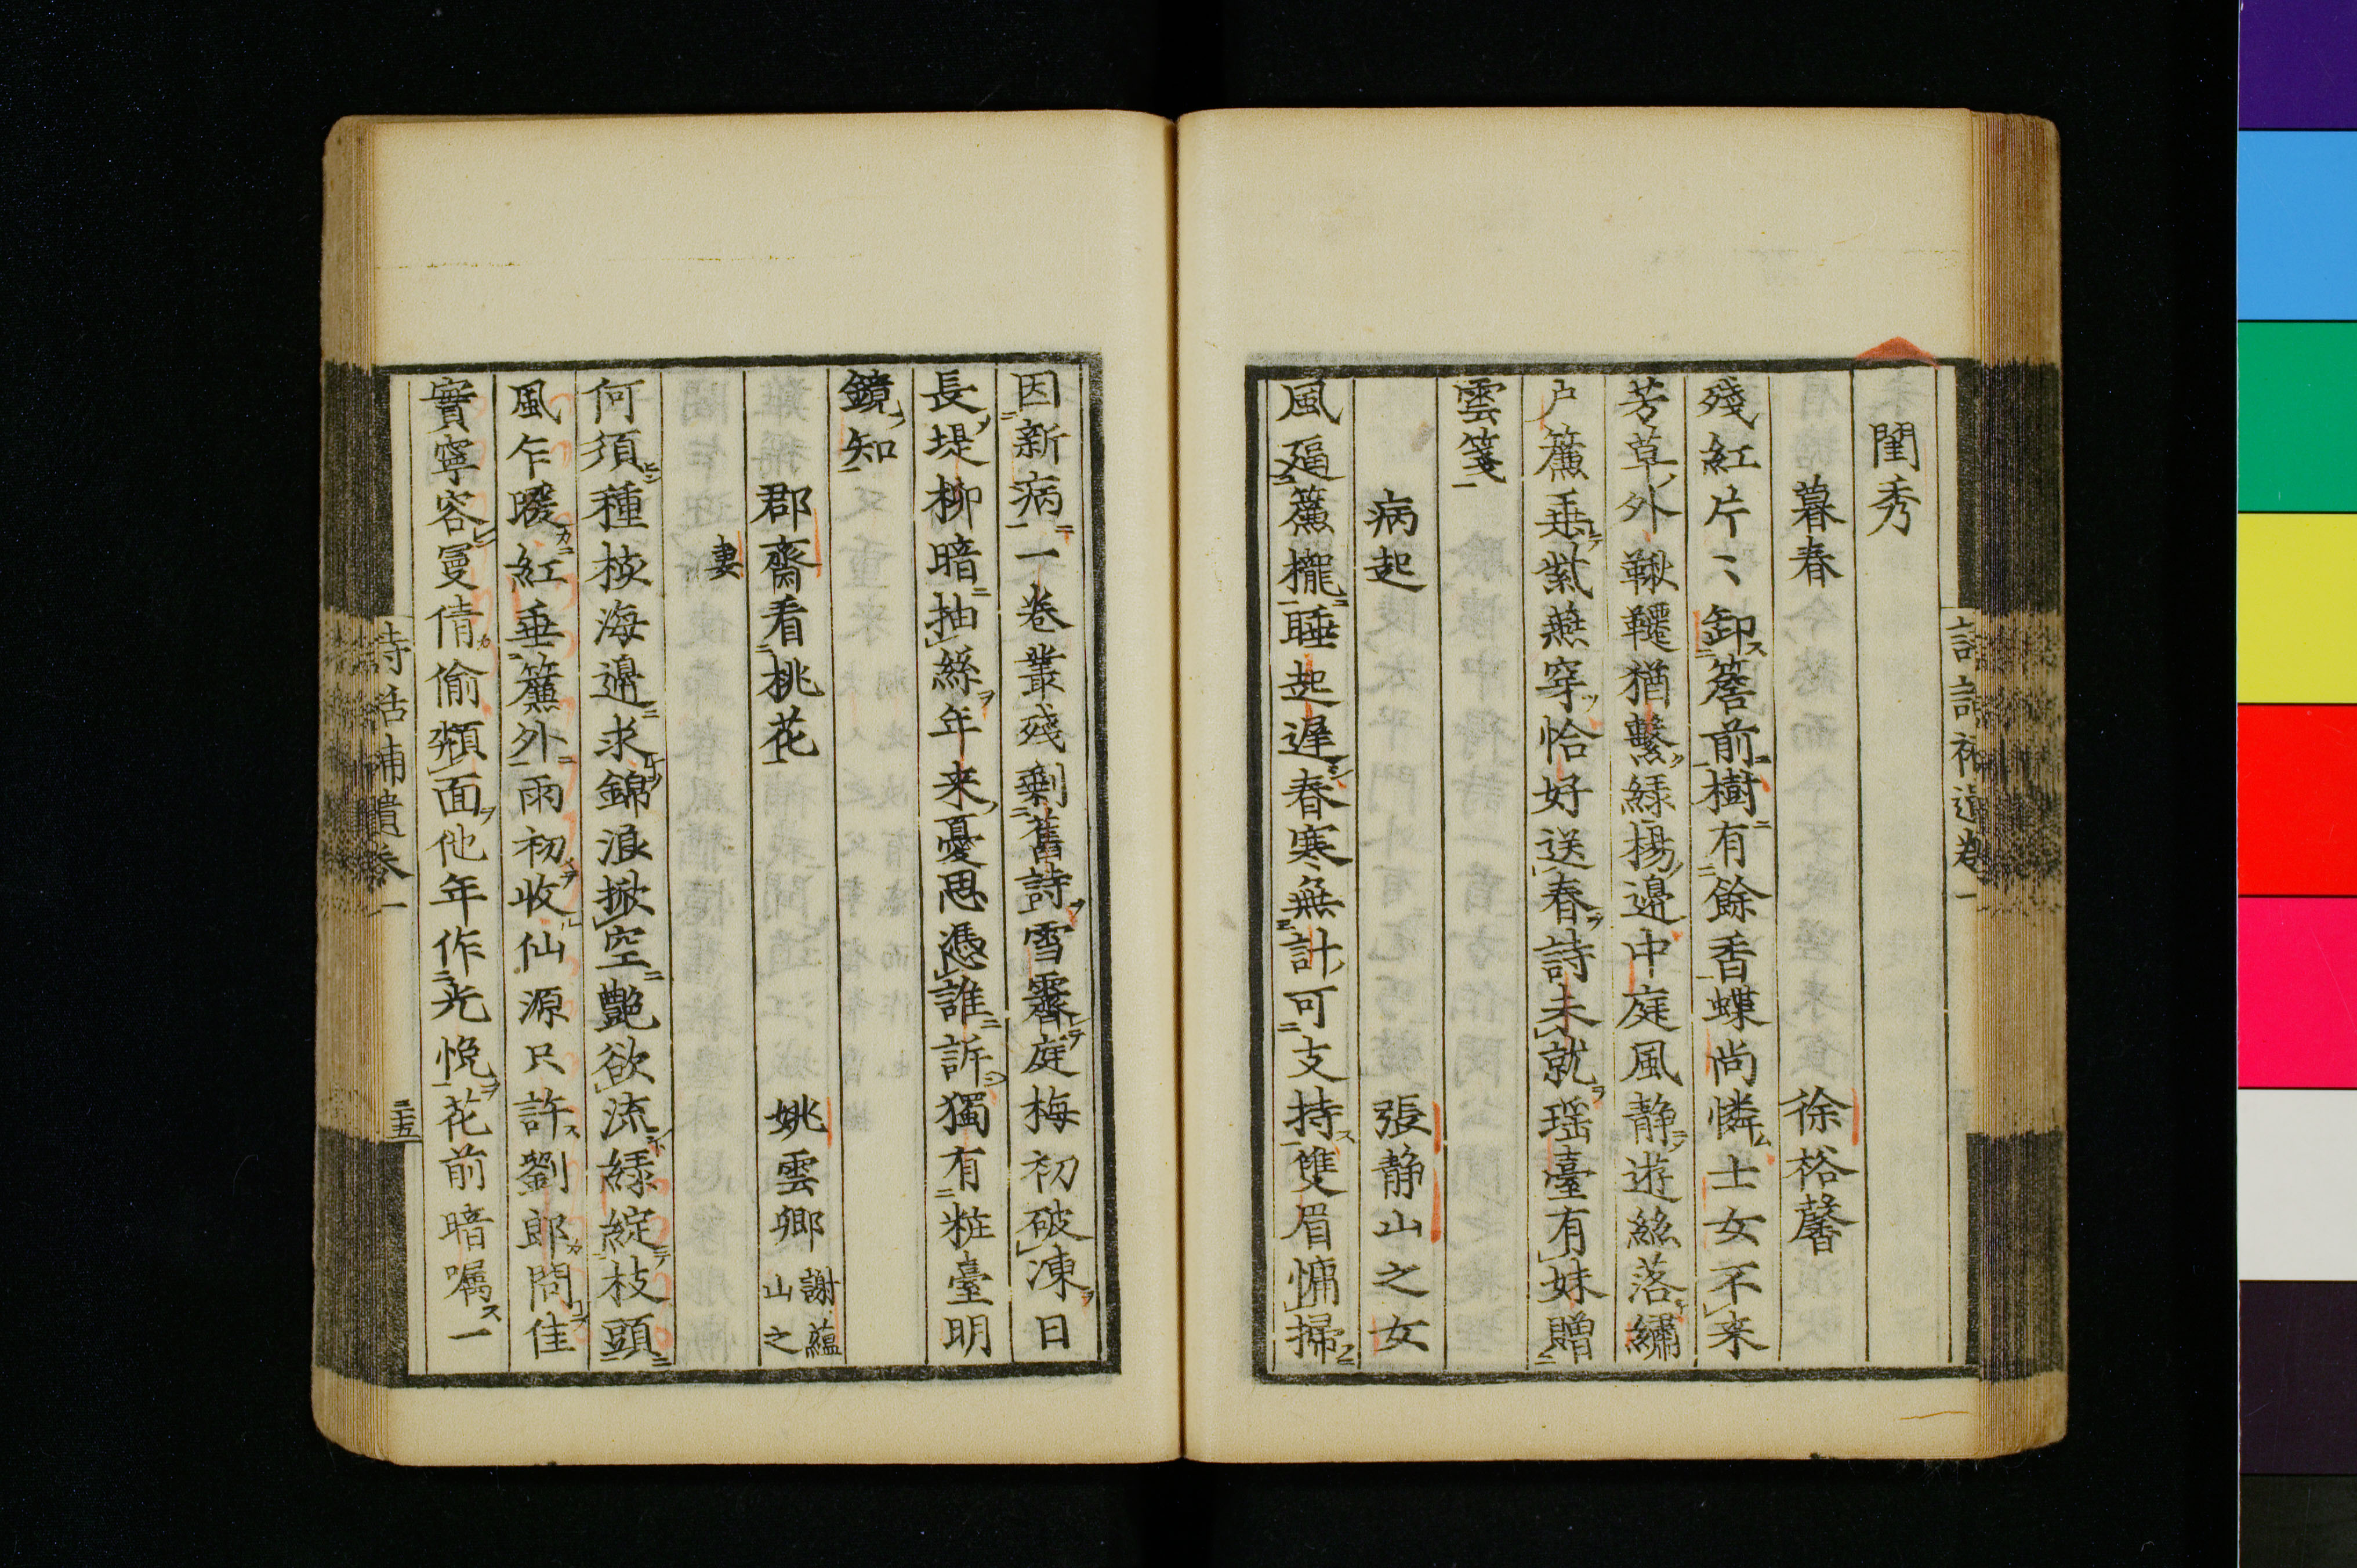 閨秀
暮春 徐裕馨
殘紅片〻卸簷前樹有餘香蝶尚憐士女不来
芳草外鞦韆猶繫綠楊邊中庭風静遊絲落繡
戸簾垂紫燕穿恰好送春詩未就瑶臺有妹贈
雲箋
病起 張静山之女
風逼簾櫳睡起遲春寒無計可支持雙眉慵掃
因新病一卷叢殘剩舊詩雪霽庭梅初破凍日
長堤柳暗抽絲年来憂思憑誰訴獨有粧臺明
鏡知
郡齋看桃花 姚雲卿 謝蘊山之
妻
何須種核海邊求錦浪掀空艷欲流綠綻枝頭
風乍暖紅垂簾外雨初收仙源只許劉郎問佳
實寧容曼倩偷頮面他年作光悦花前暗囑一
詩話補遺卷一
二十五